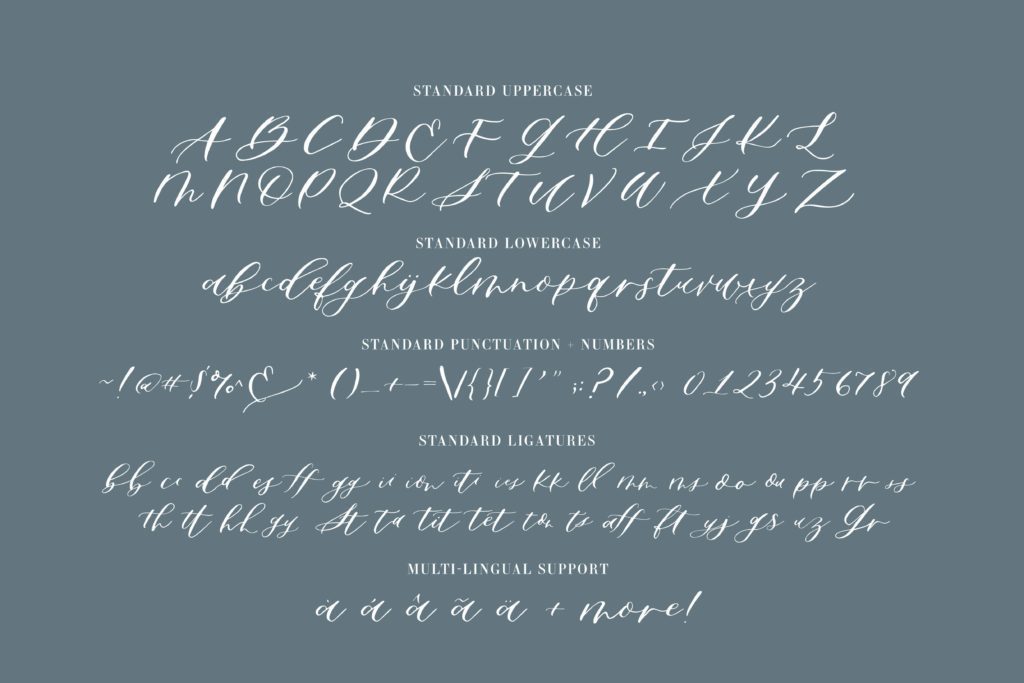 STANDARD UPPERCASE
A B C D E F G H I J K L
M N O P Q R S T U V W X Y Z
STANDARD LOWERCASE
abcdefghijklmnopqrstuvwxyz
STANDARD PUNCTUATION + NUMBERS
~!@#$%^&*()_+-=\|{}[]'";:?/.,<> 0123456789
STANDARD LIGATURES
bb cc dd es ff gg ii ion iti ies kk ll mm ms oo ou pp rr ss
th tt hh gy St ta tit tet ton ts aff ft yj gs uz Gr
MULTI-LINGUAL SUPPORT
à á â ã ä + more!